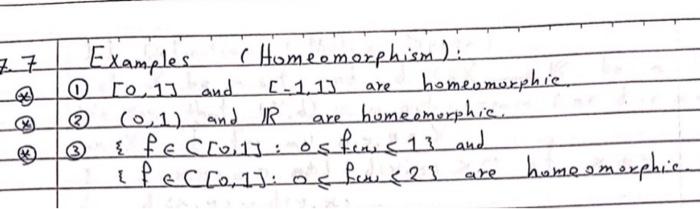 7.7 Examples (Homeomorphism):
① [0,1] and [-1,1] are homeomorphic.
② (0,1) and ℝ are homeomorphic.
③ { f ∈ C[0,1] : 0 ≤ f(x) ≤ 1 } and
{ f ∈ C[0,1] : 0 ≤ f(x) ≤ 2 } are homeomorphic.